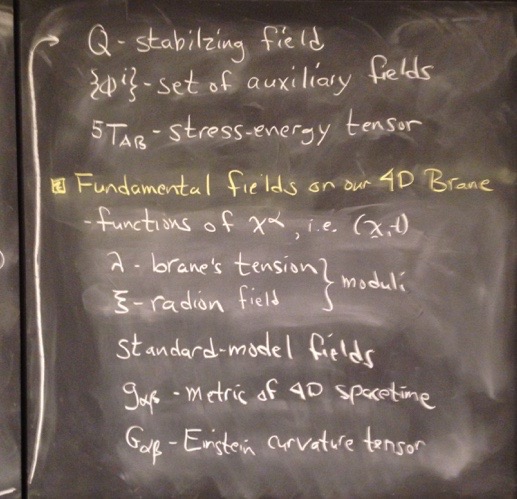 Q - stabilzing field
{Φⁱ} - set of auxiliary fields
⁵T_AB - stress-energy tensor
Fundamental fields on our 4D Brane
- functions of x^α, i.e. (x, t)
λ - brane's tension } moduli
ξ - radion field
standard-model fields
g_αβ - metric of 4D spacetime
G_αβ - Einstein curvature tensor